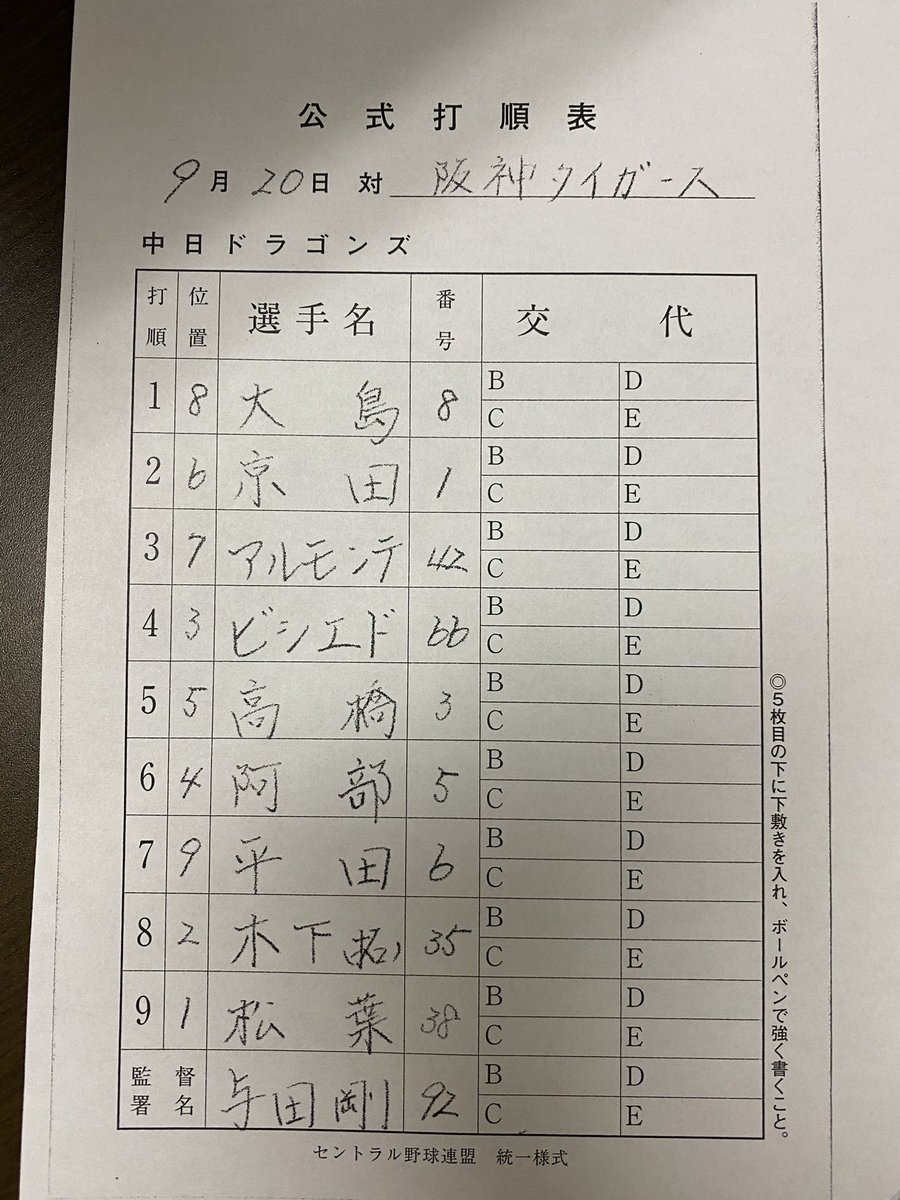 公式打順表
9月20日 対 阪神タイガース
中日ドラゴンズ
打順 位置 選手名 番号 交代
1 8 大島 8 B D
C E
2 6 京田 1 B D
C E
3 7 アルモンテ 42 B D
C E
4 3 ビシエド 66 B D
C E
5 5 高橋 3 B D
C E
6 4 阿部 5 B D
C E
7 9 平田 6 B D
C E
8 2 木下(拓) 35 B D
C E
9 1 松葉 38 B D
C E
監督署名 与田剛 92 B D
C E
セントラル野球連盟 統一様式
◎5枚目の下に下敷きを入れ、ボールペンで強く書くこと。